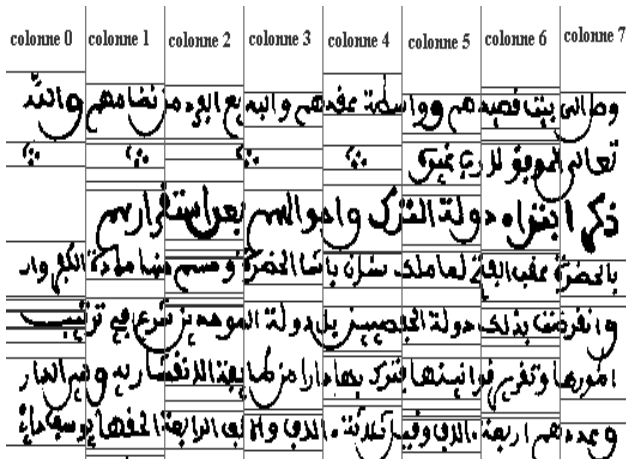 colonne 0 colonne 1 colonne 2 colonne 3 colonne 4 colonne 5 colonne 6 colonne 7
بيت قصيدهم وواسطة عقدهم نضامهم والله
تعالى الموفق لا رب غيره
ذكر ابتداء دولة الترك واحوالهم بعد استقرارهم
بالحضرة عقب الفتح لما ملك سنان باشا الحضرة وحسم مادة الكفر وار
وانقرضت بذلك دولة الحفصيين بل دولة الموحدين شرع في ترتيب
امورها وتقرير قوانينها فترك بها دارا من طايفة
وعددهم اربعة الاف وقيل ثلاثة الاف والالف الرابعة الحقها يوسف داي